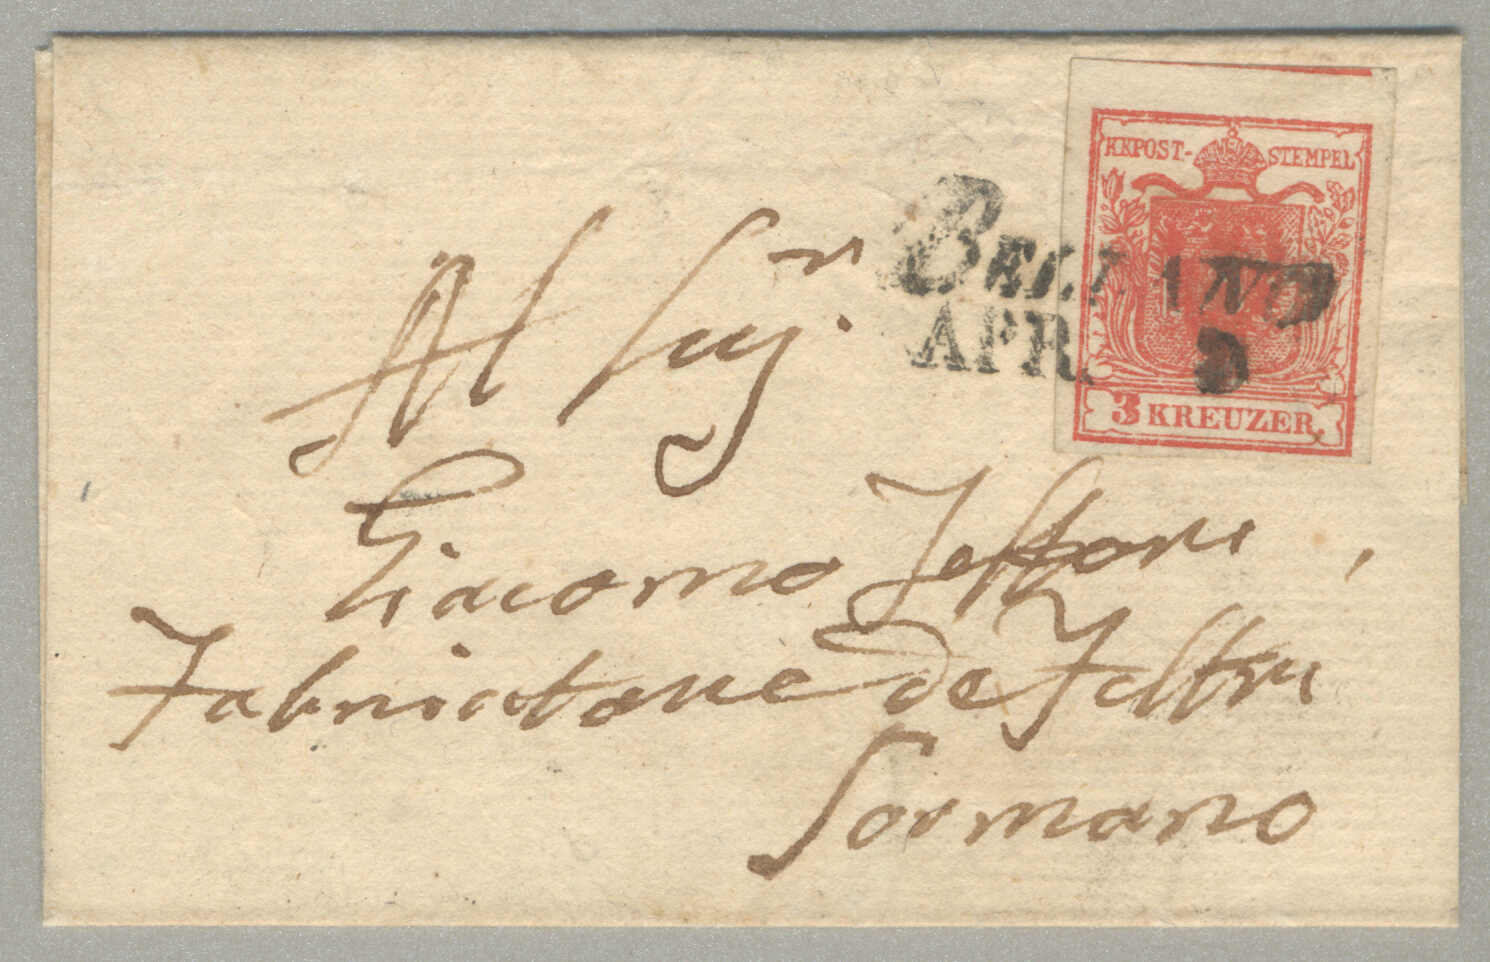 KKPOST-STEMPEL
3 KREUZER.
BELLANO
APR. 9
Al Sigr.
Giacomo Testori
Fabricatore de Feltri
Sormano